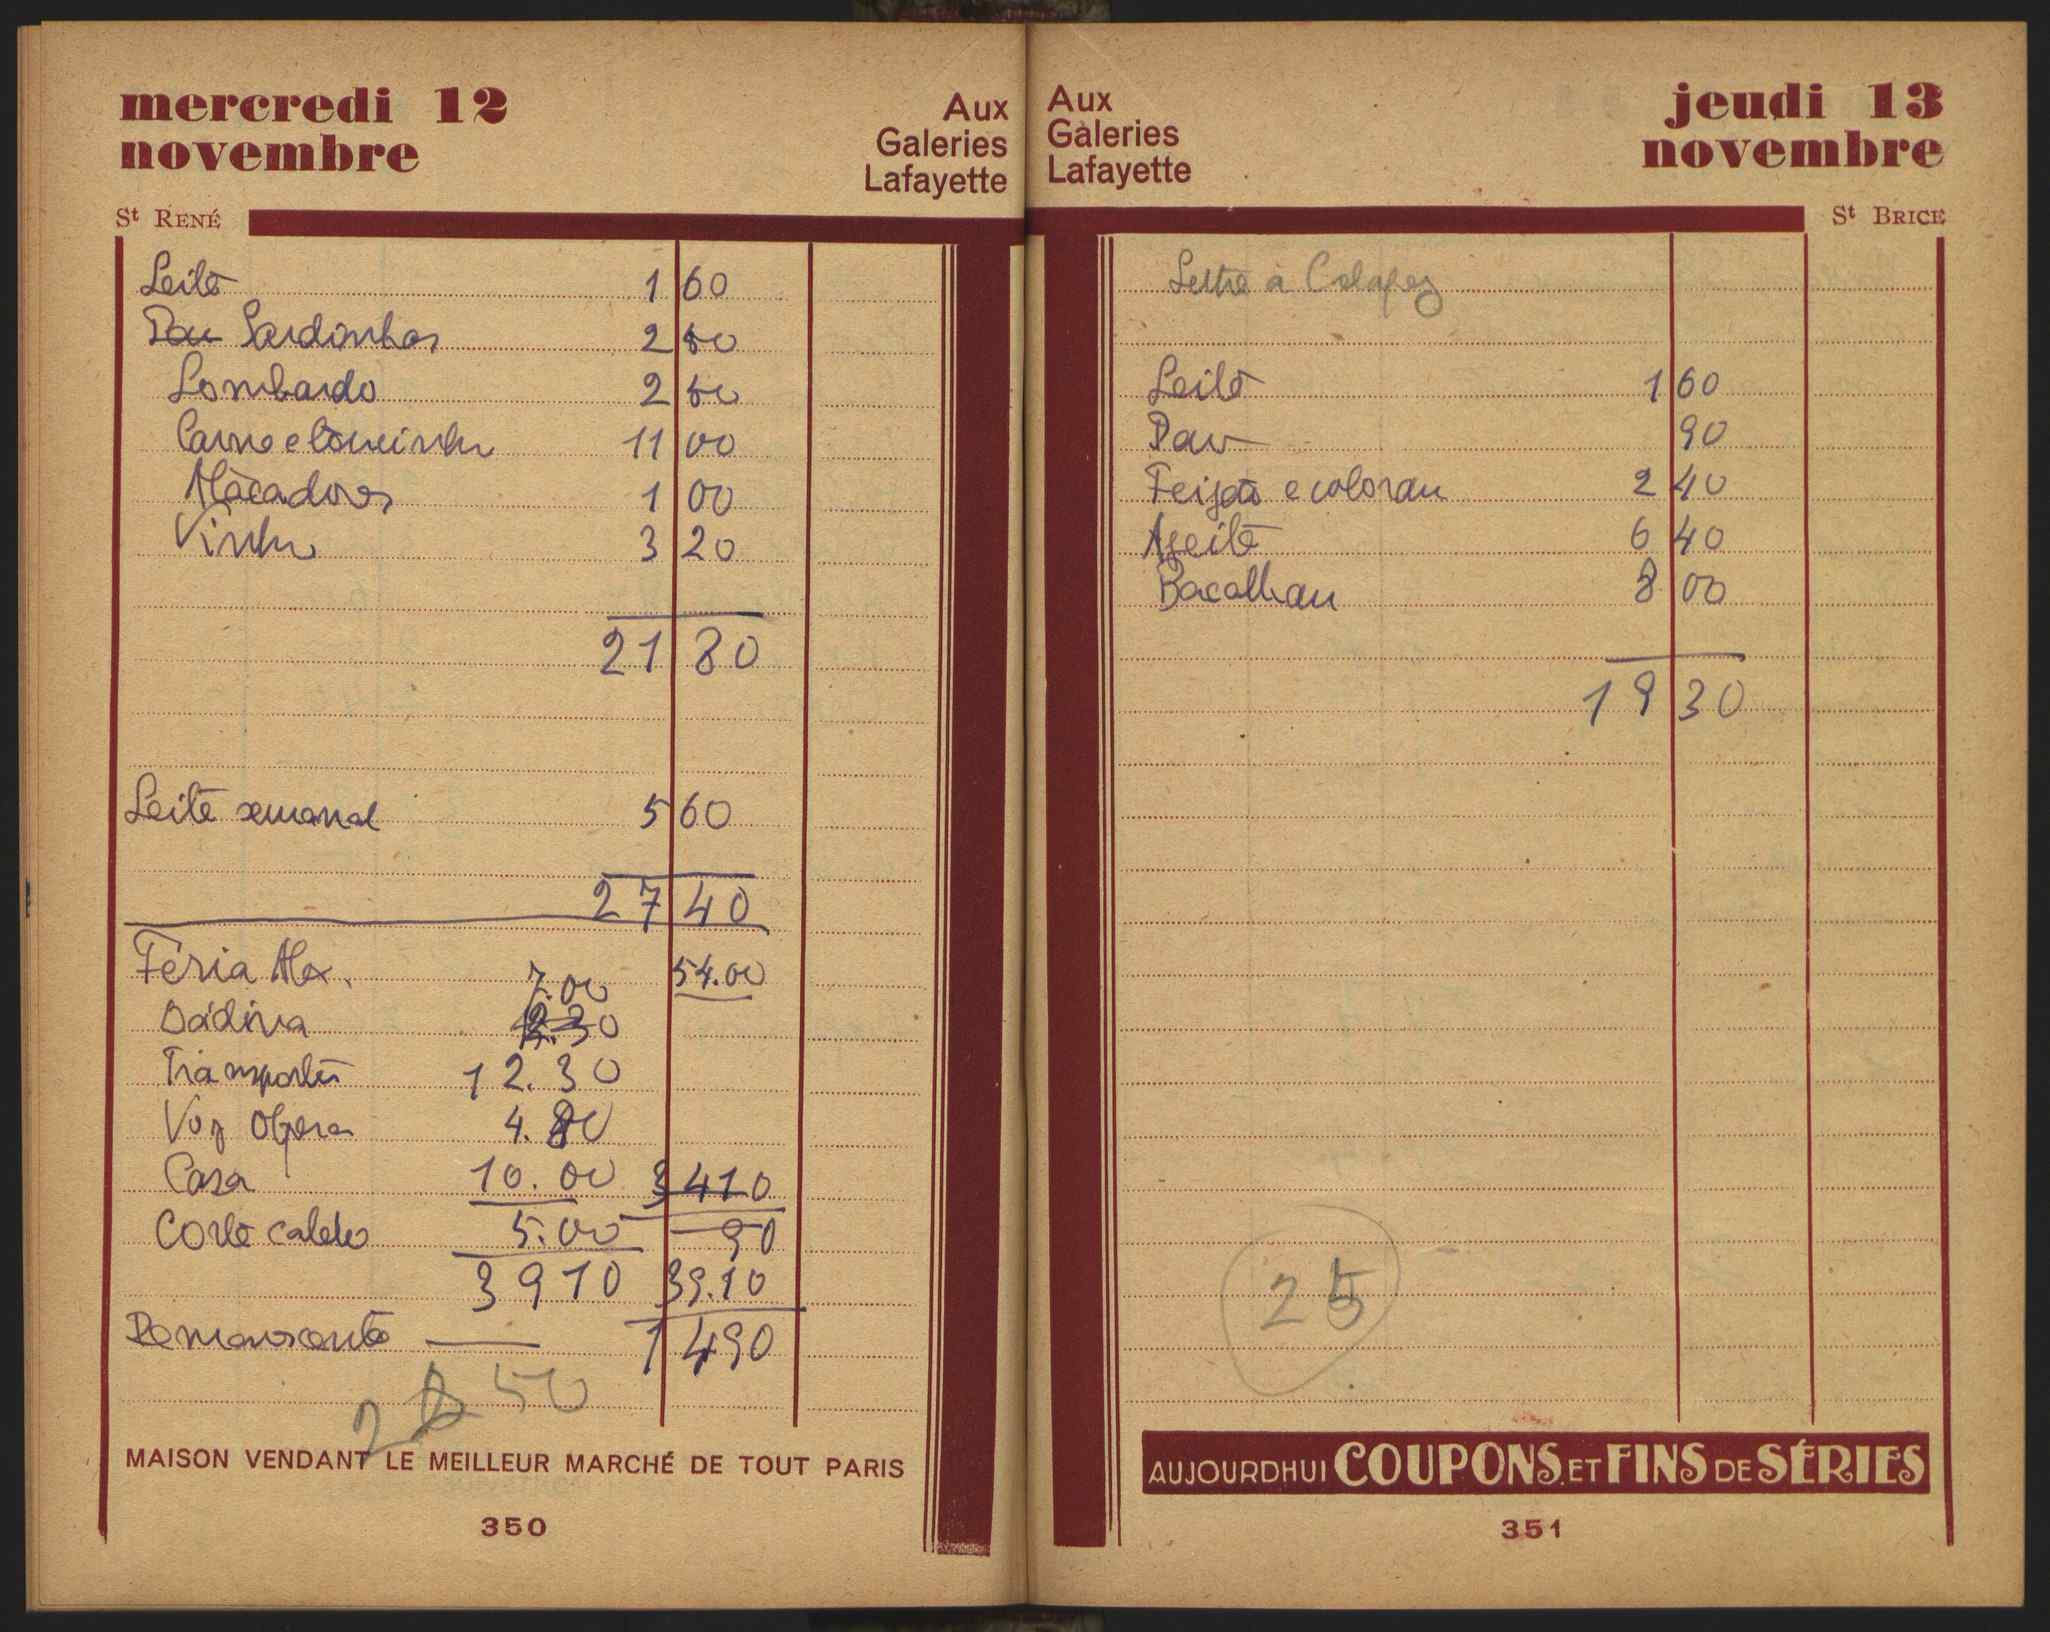 mercredi 12
novembre
Aux
Galeries
Lafayette
St RENÉ
Leite 1 60
Pau Sardinhas 2 50
Lombardo 2 50
Carne e toucinho 11 00
Macadores 1 00
Vinho 3 20
21 80
Leite semanal 5 60
27 40
Féria Alex. 54.00
7.00
Dádiva
Transportes 12.30
Voz Opera 4.80
Casa 10.00 3410
Corte cabelo 5.00 90
3910 39.10
Remanescente 1490
50
MAISON VENDANT LE MEILLEUR MARCHÉ DE TOUT PARIS
350
Aux
Galeries
Lafayette
jeudi 13
novembre
St BRICE
Lettre à Colafez
Leite 1 60
Pau 90
Feijão e colorau 2 40
Azeite 6 40
Bacalhau 8 00
19 30
25
AUJOURDHUI COUPONS ET FINS DE SÉRIES
351